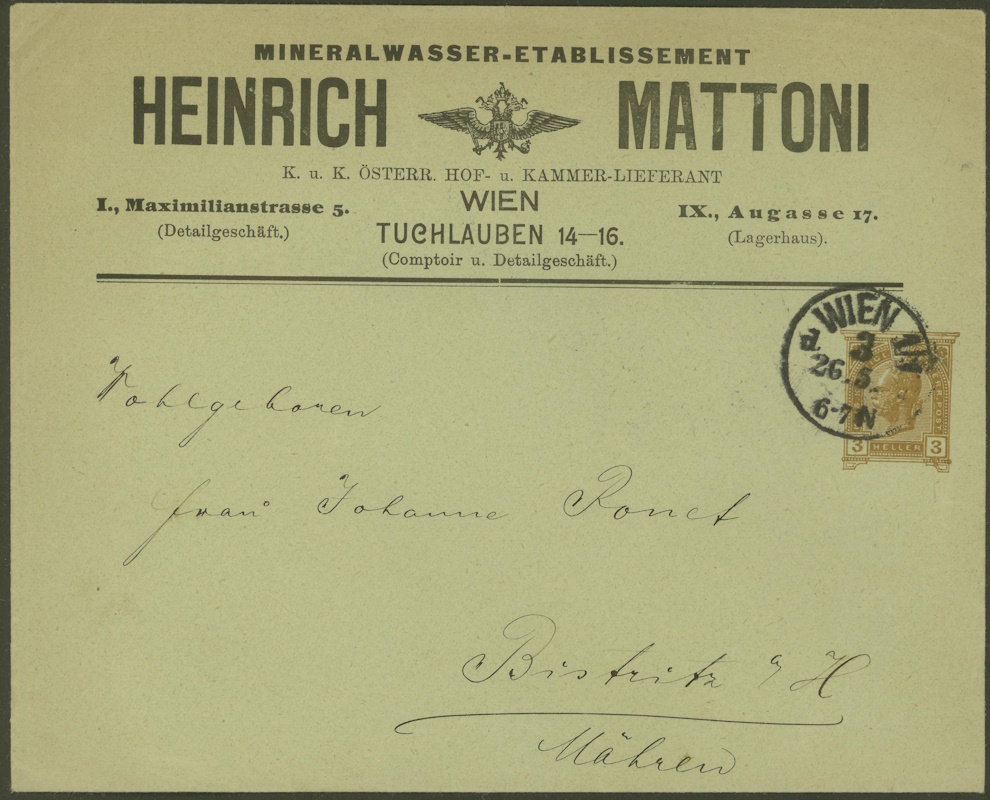 MINERALWASSER-ETABLISSEMENT
HEINRICH MATTONI
K. u. K. ÖSTERR. HOF- u. KAMMER-LIEFERANT
I., Maximilianstrasse 5.
(Detailgeschäft.)
WIEN
TUCHLAUBEN 14—16.
(Comptoir u. Detailgeschäft.)
IX., Augasse 17.
(Lagerhaus).
WIEN
d. 3
26. 5.
6-7 N
3 HELLER 3
Wohlgeboren
Frau Johanne Ronet
Bistritz a/H
Mähren